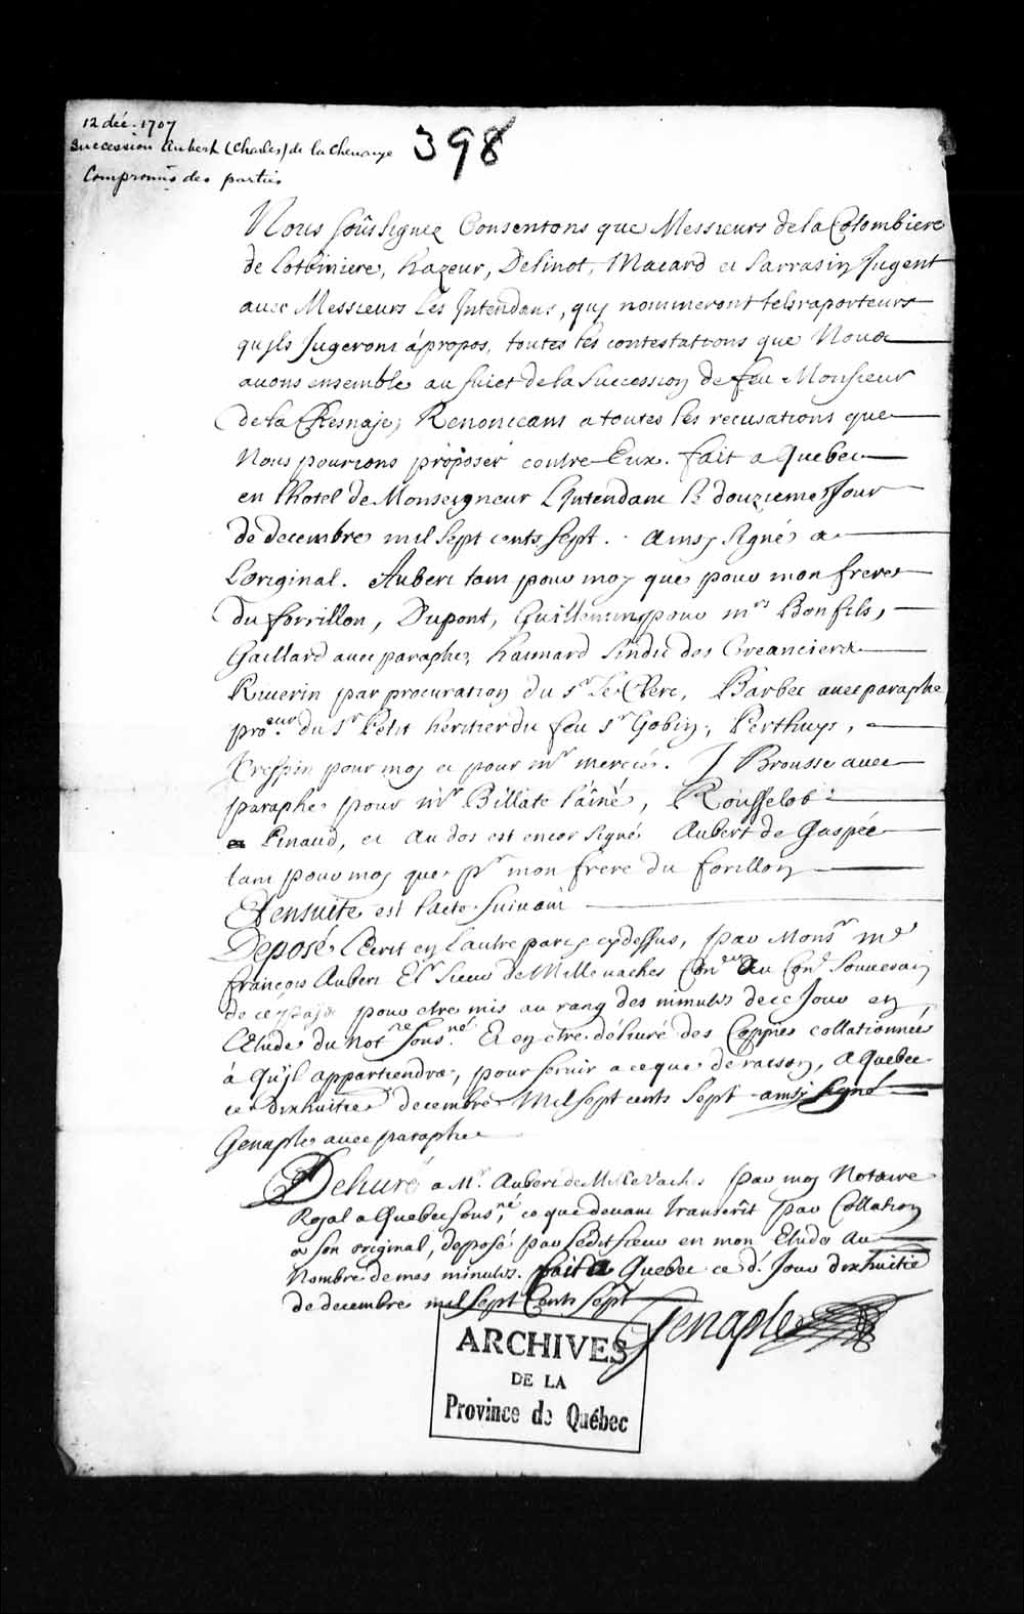 12 déc. 1707
Succession Aubert (Charles) de la Chenaye
Compromis des parties
398
Nous soussignez Consentons que Messieurs de la Colombiere
de Lotbiniere, hazeur, Delinot, Macard et Sarrasin Jugent
avec Messieurs Les Intendans, quj nommeront tels raporteurs
qujls Jugeront àpropos, toutes les contestations que Nous
auons ensemble au suiet de la Succession de feu Monsieur
de la Chesnaje; Renoncans a toutes les recusations que
Nous pourions proposer contre Eux. fait a Quebec
en lhotel de Monseigneur LIntendant le douziemes Jour
de decembre mil sept cents sept. Ainsy signé a
Loriginal. Aubert tant pour moy que pour mon frere
du forrillon, Dupont, Guillemin pour mrs Bonfils,
Gaillard avec paraphe, haimard sindic des Creanciers
Riuerin par procuration du sr Le Clerc, Barbel avec paraphe
procur du sr Petit heritier du feu sr Gobin, Perthuys,
Crespin pour moy et pour mr mercier. J Brousse avec
paraphe pour mr Billate lâiné, Rousselot
et Pinaud, et au dos est encor signé Aubert de Gaspée
tant pour moy que pr mon frere du forillon
Et ensuite est lacte suivant
Deposé LEcrit en lautre part cydessus, par Monsr me
francois Aubert Esr Sieur de Millevaches Coner au Conl Souuerain
de ce païs pour etre mis au rang des minutes de ce Jour en
LEtude du notre sousné. Et en etre déliuré des Coppies collationnées
à Qu'jl appartiendra, pour seruir a ce que de raison, a Quebec
ce dixhuitie decembre Mil sept cents sept ainsy signé
Genaple avec paraphe
Deliuré a Mr. Aubert de Mille Vaches par moy Notaire
Rojal a Quebec sousné, ce que deuant transcrit par Collation
a son original, déposé par ledit sieur en mon Etude au
Nombre de mes minutes. fait a Quebec ce d. Jour dixhuitie
de decembre mil sept Cents sept
Genaple
ARCHIVES
DE LA
Province de Québec